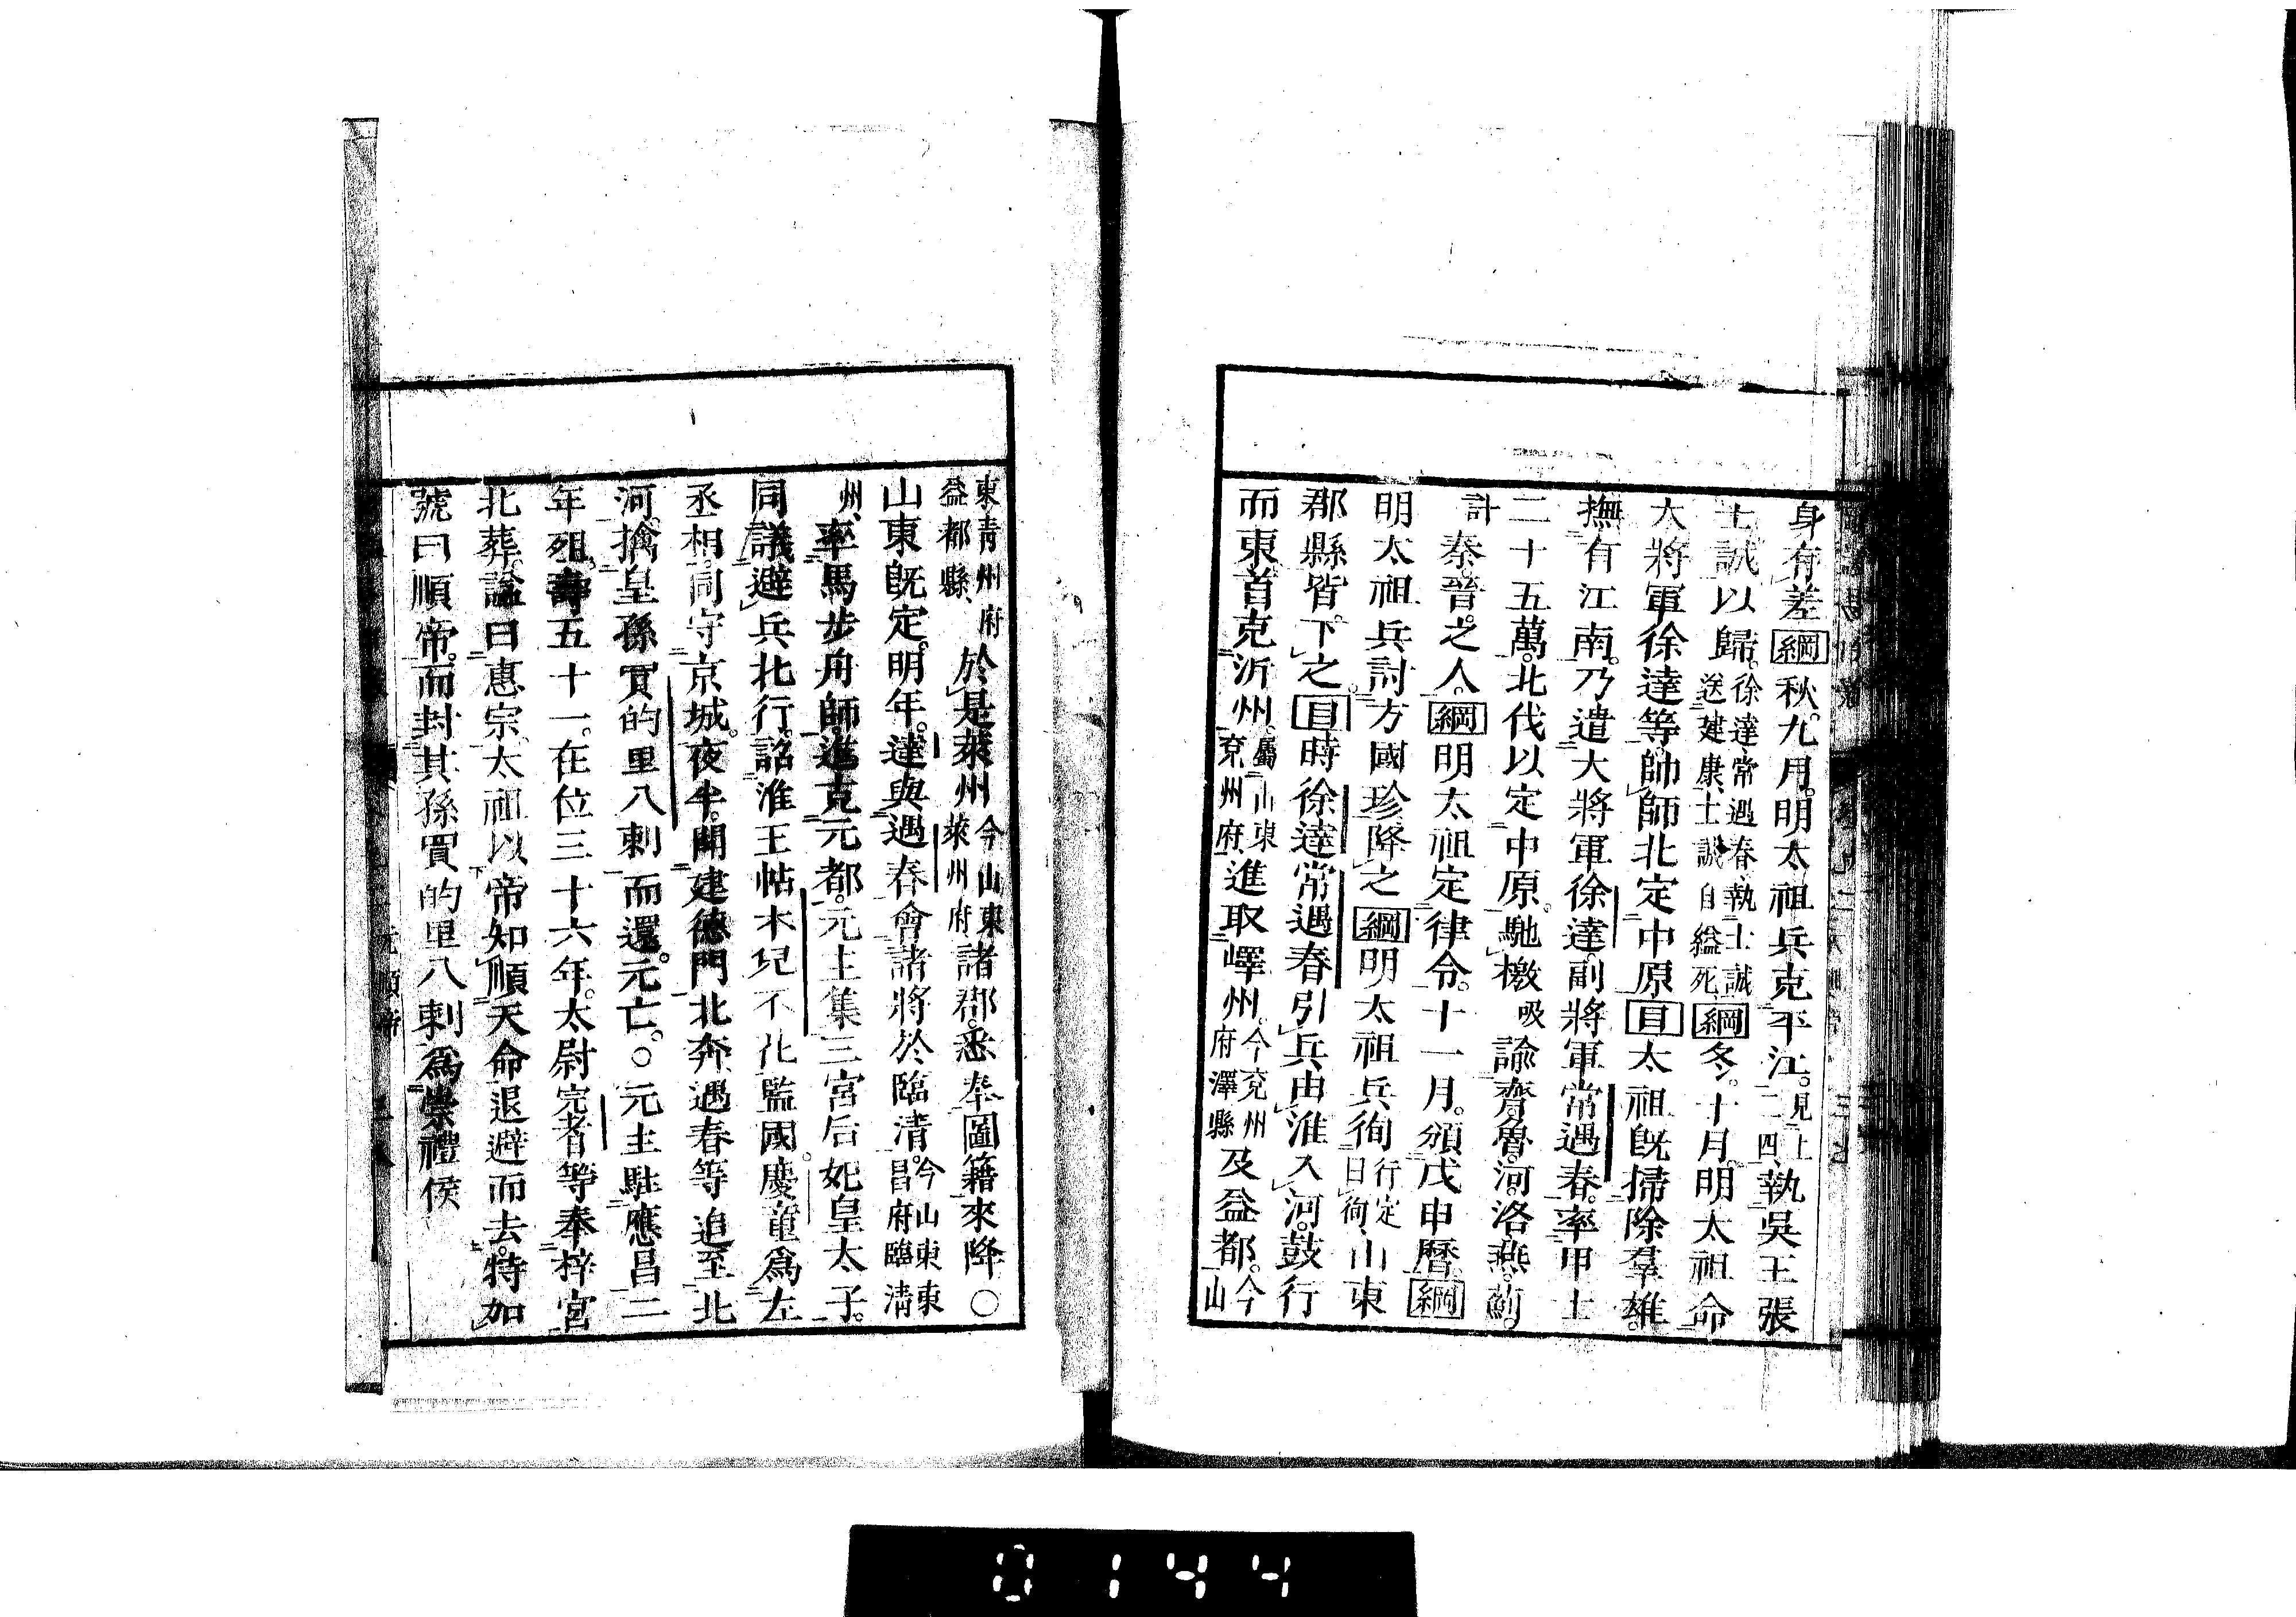 身有差綱秋九月明太祖兵克平江見上二四執吳王張
士誠以歸徐達常遇春執士誠送建康士誠自縊死綱冬十月明太祖命
大將軍徐達等帥師北定中原目太祖既掃除羣雄
撫有江南乃遣大將軍徐達副將軍常遇春率甲士
二十五萬北伐以定中原馳檄吸諭齊魯河洛燕薊
計秦晉之人綱明太祖定律令十一月頒戊申曆綱
明太祖兵討方國珍降之綱明太祖兵徇行定曰徇山東
郡縣皆下之目時徐達常遇春引兵由淮入河鼓行
而東首克沂州屬山東兗州府進取嶧州今兗州府澤縣及益都今山
東青州府益都縣於是萊州今山東萊州府諸郡悉奉圖籍來降○
山東既定明年達與遇春會諸將於臨清今山東東昌府臨清
州率馬步舟師進克元都元主集三宮后妃皇太子
同議避兵北行詔淮王帖木兒不花監國慶童爲左
丞相同守京城夜半開建德門北奔遇春等追至北
河擒皇孫買的里八剌而還元亡○元主駐應昌二
年殂壽五十一在位三十六年太尉完者等奉梓宮
北葬謚曰惠宗太祖以帝知順天命退避而去特加
號曰順帝而封其孫買的里八剌爲崇禮侯
元順帝
0144